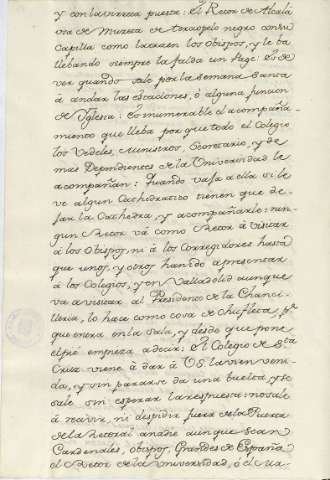 y con la veneza puesta: El Retor de Alcalá
usa de Muzeta de terciopelo negro con su
Capilla como la traen los Obispos, y le ba
llebando siempre la falda un Page: Es de
ver quando sale por la semana santa
á andar las estaciones, ó alguna funcion
de Yglesia: Es innumerable el acompaña-
miento que lleba por que todo el Colegio
los Vedeles, Ministros, Secretario, y de
mas Dependientes de la Universidad le
acompañan: Quando vaja a ella si le
ve algun Cathedratico tienen que de-
jar la Cathedra, y acompañarle: nin-
gun Retor vá como Retor á visitar
á los Obispos, ni á los Corregidores hasta
que unos, y otros han ido a presentar
á los Colegios, y en Valladolid aunque
va a visitar al Presidente de la Chanci-
lleria, lo hace como cosa de chufleta, pr.
que entra en la sala, y desde que pone
el pie empieza a decir: El Colegio de Sta.
Cruz viene á dar á V.S. la vien veni-
da, y sin pararse da una buelta, y se
sale sin esperar la respuesta: no sale
á recivir, ni despidir fuera de la Puerta
de la Retoral a nadie aunque sean
Cardenales, obispos, Grandes de España
el Retor de la Universidad, ó el Ma-